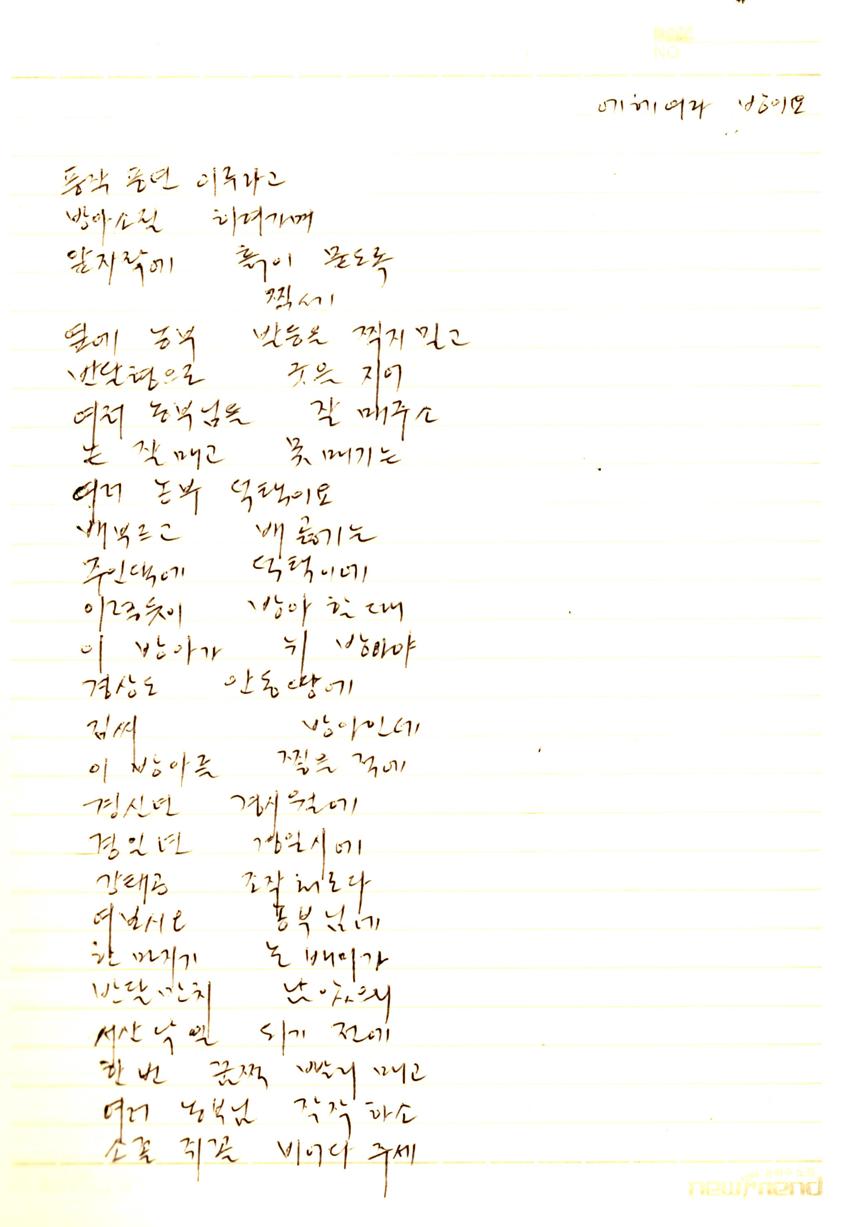 에헤여라 방아요
풍작 풍년 이루라고
방아소릴 하여가며
앞자락에 흙이 묻도록
찍세
옆에 농부 발등을 찍지말고
반달형으로 굿을 지어
여러 농부님들 잘 매주소
논 잘매고 못매기는
여러 농부 덕택이요
배부르고 배곯기는
주인댁에 덕택이에
이렇듯이 방아 할 때
이 방아가 뉘 방아야
경상도 안동땅에
김씨 방아인데
이 방아를 찧을 적에
경신년 경신월에
경일년 경일시에
강태공 조작이로다
여보시오 농부님네
한 마지기 논배미가
반달만치 남았으니
서산낙일 되기 전에
한번 꿈쩍 빨리 매고
여러 농부님 작작하소
소꼴 쥐꼴 비어다 주세